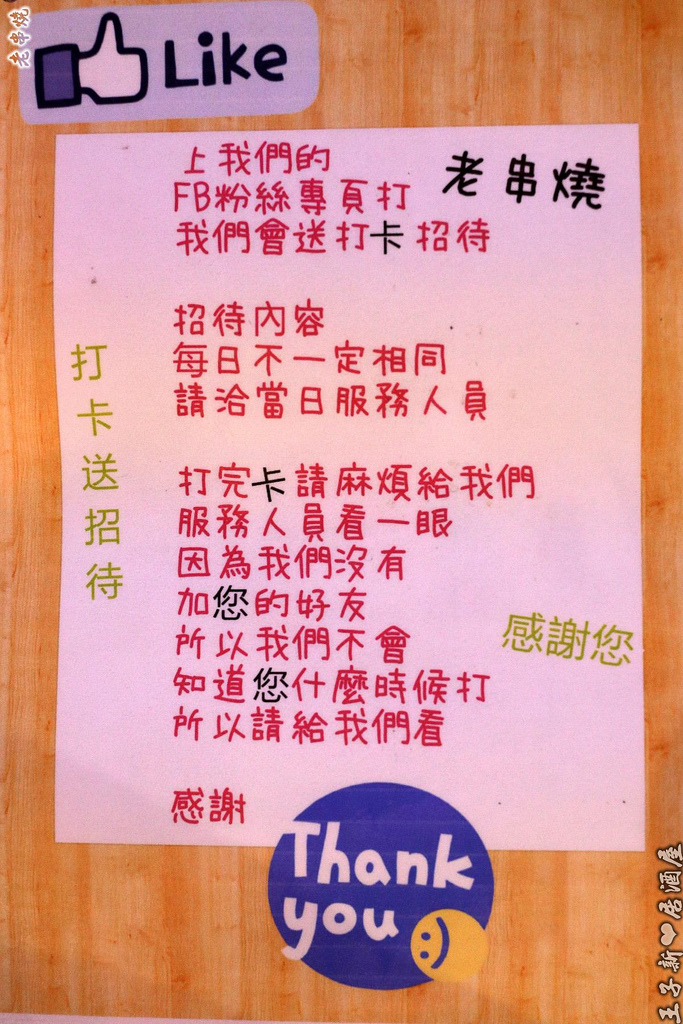 老串燒
Like
老串燒
上我們的
FB粉絲專頁打
我們會送打卡招待
招待內容
每日不一定相同
請洽當日服務人員
打卡送招待
打完卡請麻煩給我們
服務人員看一眼
因為我們沒有
加您的好友
所以我們不會
知道您什麼時候打
所以請給我們看
感謝您
感謝
Thank
you
王子新❤居酒屋